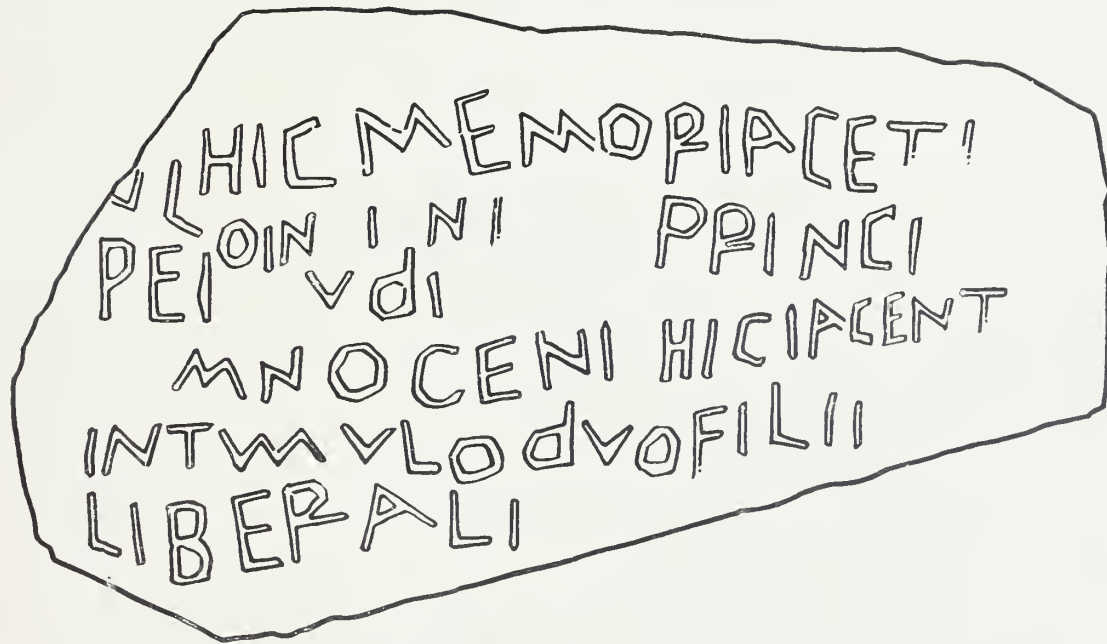 HIC MEMORIACETI
PEIOIN INI PRINCI
VdI
MNOCENI HICIACENT
INTVMVLO dVOFILII
LIBERALI